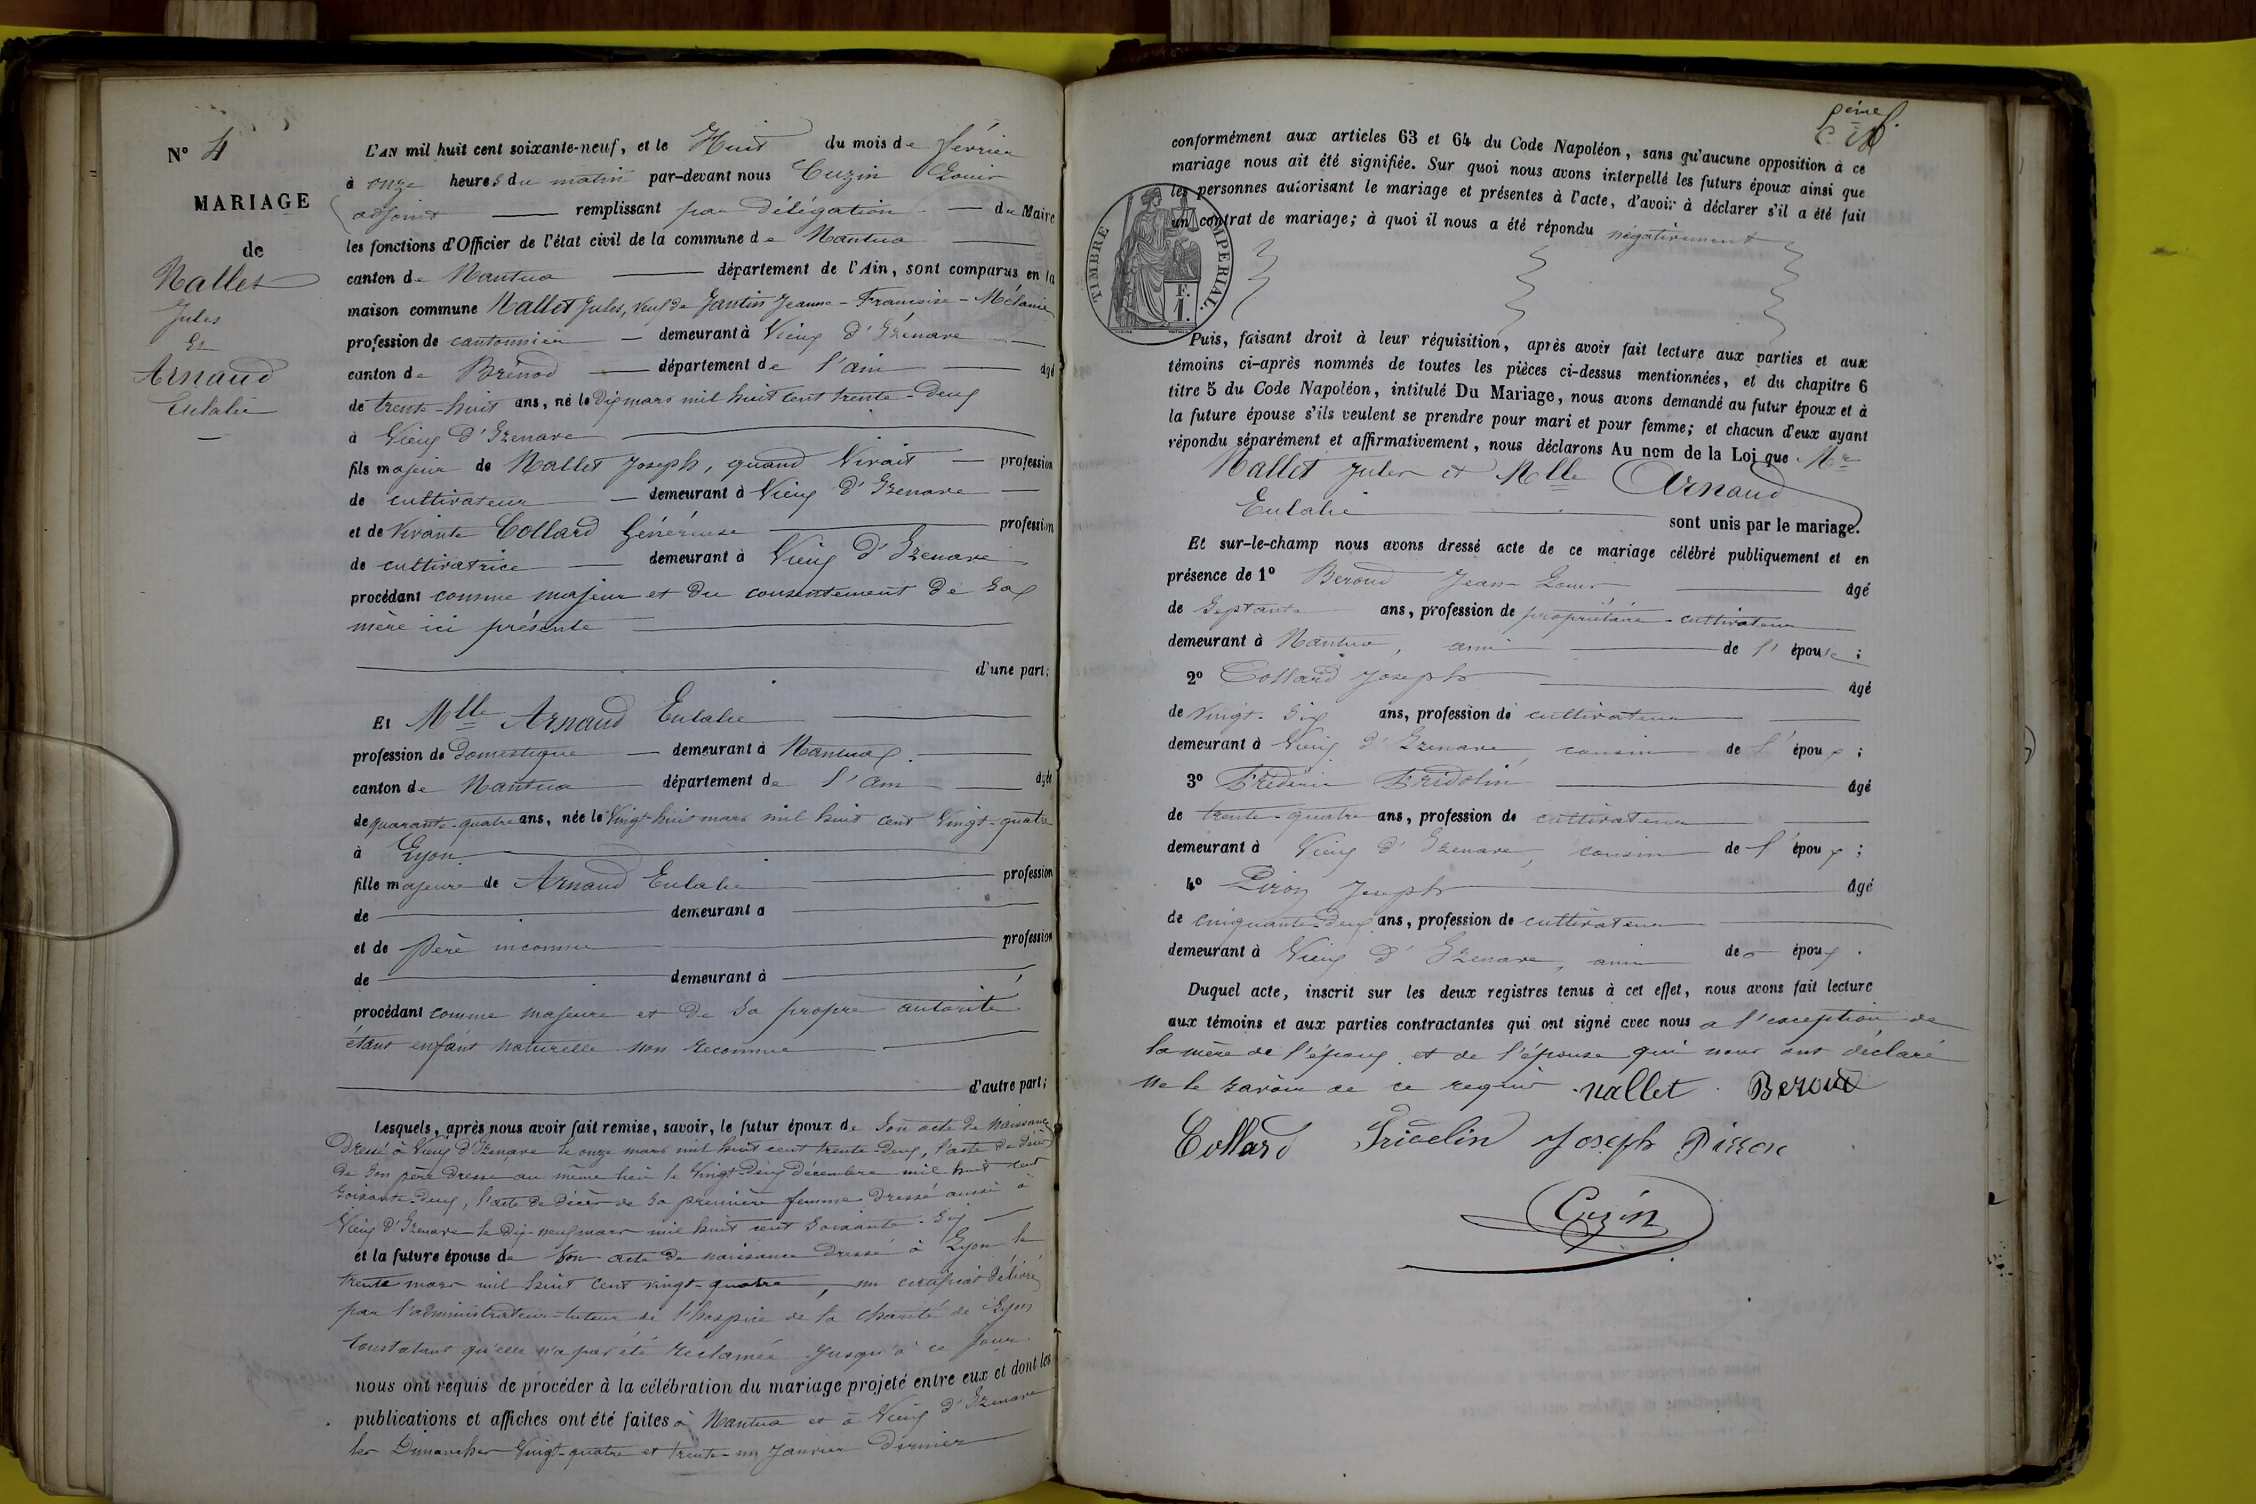 N° 4
MARIAGE
de
Nallet
Jules
Et
Arnaud
Eulalie
L'AN mil huit cent soixante-neuf, et le Huit du mois de février
à onze heures du matin par-devant nous Cuzin Louis
adjoint remplissant par délégation du Maire
les fonctions d'Officier de l'état civil de la commune de Nantua
canton de Nantua département de l'Ain, sont comparus en la
maison commune Nallet Jules, veuf de Jantin Jeanne-Françoise-Mélanie
profession de cantonnier demeurant à Vieux d'Izenave
canton de Brénod département de l'ain âgé
de trente-huit ans, né le Dix mars mil huit cent trente-deux
à Vieux d'Izenave
fils majeur de Nallet Joseph, quand vivait profession
de cultivateur demeurant à Vieux d'Izenave
et de vivante Collard Généreuse profession
de cultivatrice demeurant à Vieux d'Izenave
procédant comme majeur et du consentement de sa
mère ici présente
d'une part;
Et Mlle Arnaud Eulalie
profession de Domestique demeurant à Nantua
canton de Nantua département de l'ain âgée
de quarante-quatre ans, née le vingt-huit mars mil huit cent vingt-quatre
à Lyon
fille majeure de Arnaud Eulalie profession
de demeurant à
et de Père inconnu profession
de demeurant à
procédant comme majeure et de sa propre autorité
étant enfant naturelle non reconnue
d'autre part;
Lesquels, après nous avoir fait remise, savoir, le futur époux de son acte de naissance
dressé à Vieux d'Izenave le onze mars mil huit cent trente-deux, l'acte de décès
de son père dressé au même lieu le vingt-deux décembre mil huit cent
soixante-deux, l'acte de décès de sa première femme dressé aussi à
Vieux d'Izenave le dix-neuf mars mil huit cent soixante-six
et la future épouse de son acte de naissance dressé à Lyon le
trente mars mil huit cent vingt-quatre, un certificat délivré
par l'administrateur-tuteur de l'hospice de la charité de Lyon
constatant qu'elle n'a pas été réclamée jusqu'à ce jour.
nous ont requis de procéder à la célébration du mariage projeté entre eux et dont les
publications et affiches ont été faites à Nantua et à Vieux d'Izenave
les Dimanches vingt-quatre et trente-un Janvier dernier
conformément aux articles 63 et 64 du Code Napoléon, sans qu'aucune opposition à ce
mariage nous ait été signifiée. Sur quoi nous avons interpellé les futurs époux ainsi que
les personnes autorisant le mariage et présentes à l'acte, d'avoir à déclarer s'il a été fait
un contrat de mariage; à quoi il nous a été répondu négativement
TIMBRE IMPERIAL.
F.
1.
Puis, faisant droit à leur réquisition, après avoir fait lecture aux parties et aux
témoins ci-après nommés de toutes les pièces ci-dessus mentionnées, et du chapitre 6
titre 5 du Code Napoléon, intitulé Du Mariage, nous avons demandé au futur époux et à
la future épouse s'ils veulent se prendre pour mari et pour femme; et chacun d'eux ayant
répondu séparément et affirmativement, nous déclarons Au nom de la Loi que Mr
Nallet Jules et Mlle Arnaud
Eulalie sont unis par le mariage.
Et sur-le-champ nous avons dressé acte de ce mariage célébré publiquement et en
présence de 1° Beroud Jean Louis âgé
de Septante ans, profession de propriétaire-cultivateur
demeurant à Nantua, ami de l'épouse;
2° Collard Joseph âgé
de vingt-six ans, profession de cultivateur
demeurant à Vieux d'Izenave, cousin de l'époux;
3° Fridolin âgé
de trente-quatre ans, profession de cultivateur
demeurant à Vieux d'Izenave, cousin de l'époux;
4° Joseph âgé
de cinquante-deux ans, profession de cultivateur
demeurant à Vieux d'Izenave, ami de époux.
Duquel acte, inscrit sur les deux registres tenus à cet effet, nous avons fait lecture
aux témoins et aux parties contractantes qui ont signé avec nous a l'exception de
la mère de l'époux et de l'épouse qui nous ont déclaré
ne le savoir de ce requis. nallet Beroud
Collard Joseph Pirron
Cuzin